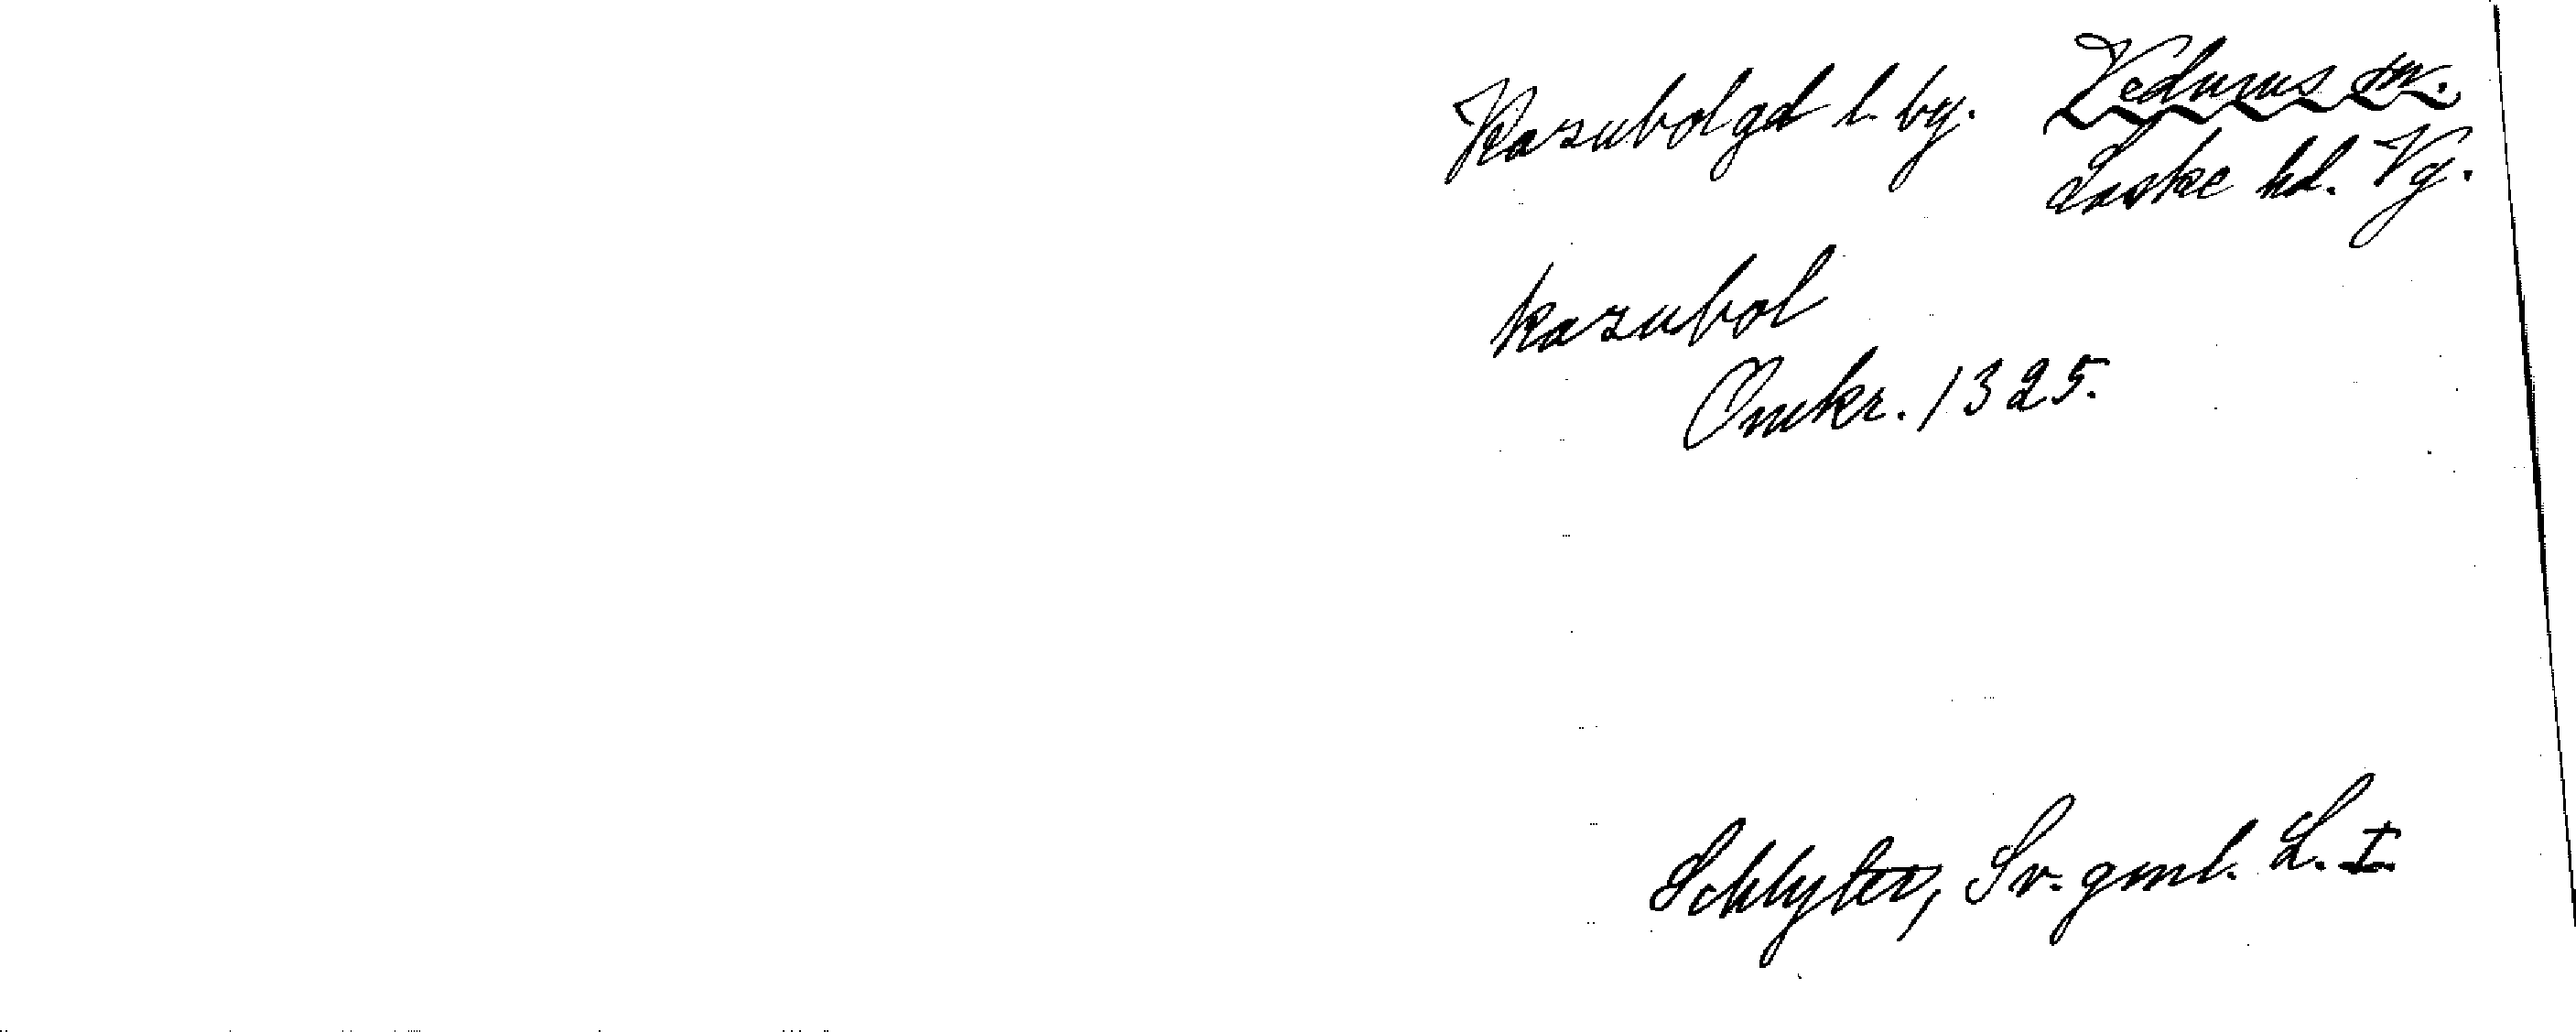 Kazubol gd l. by. Vedums sn.
Laske hd. Vg.
kazubol
Omkr. 1325.
Schlyter, Sv. gml. L. I